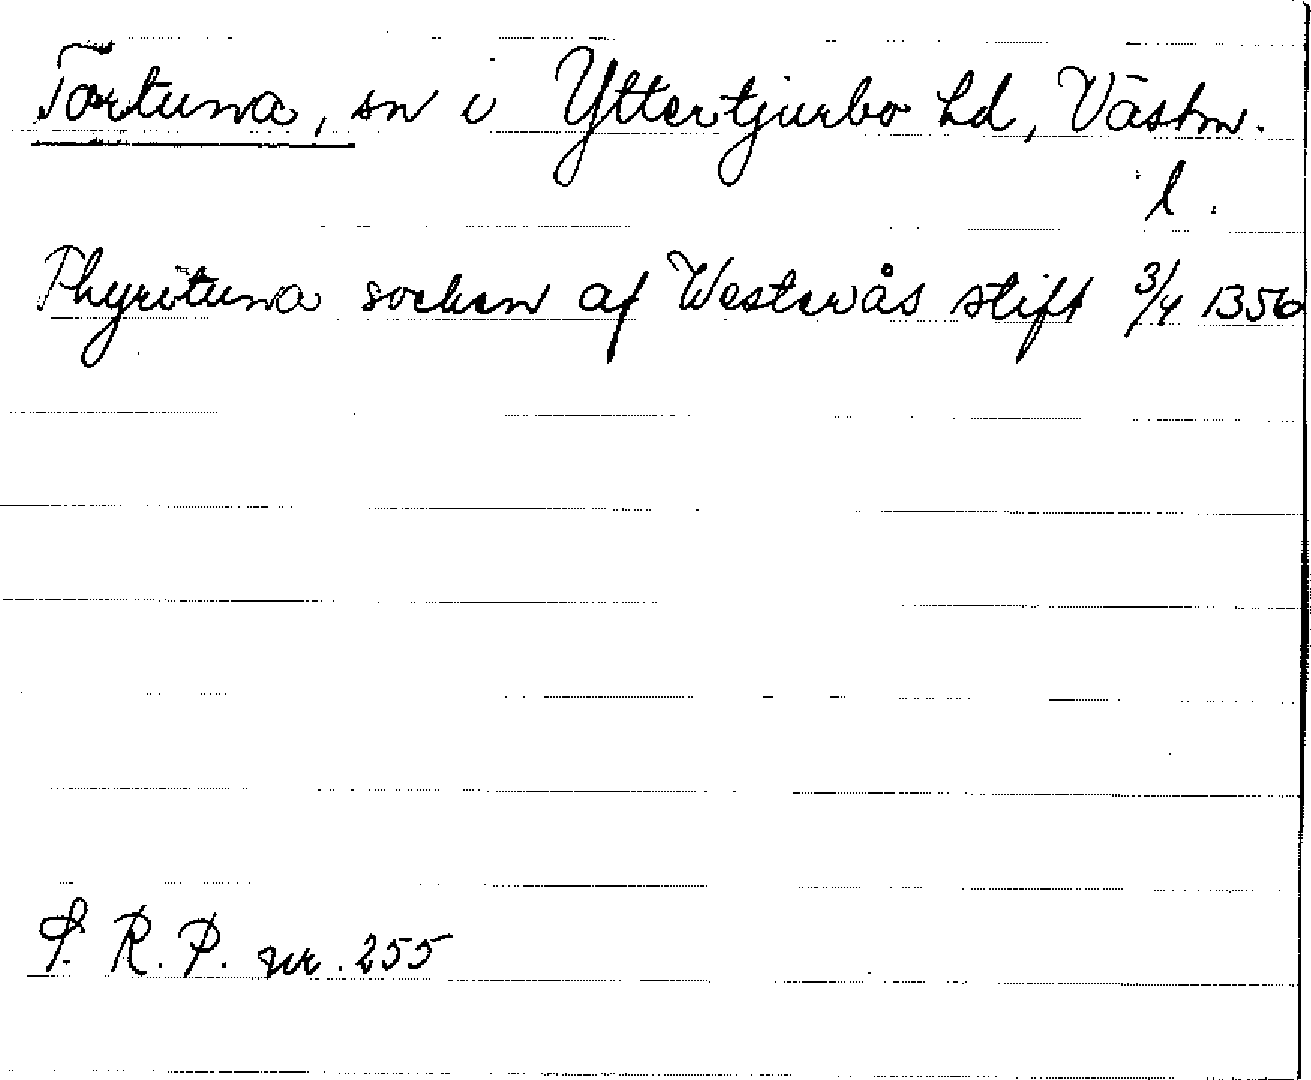 Tortuna, sn i Yttertjurbo hd, Västm.
l.
Thyrituna socken af Westerås stift 3/4 1356
S. R. P. nr. 255